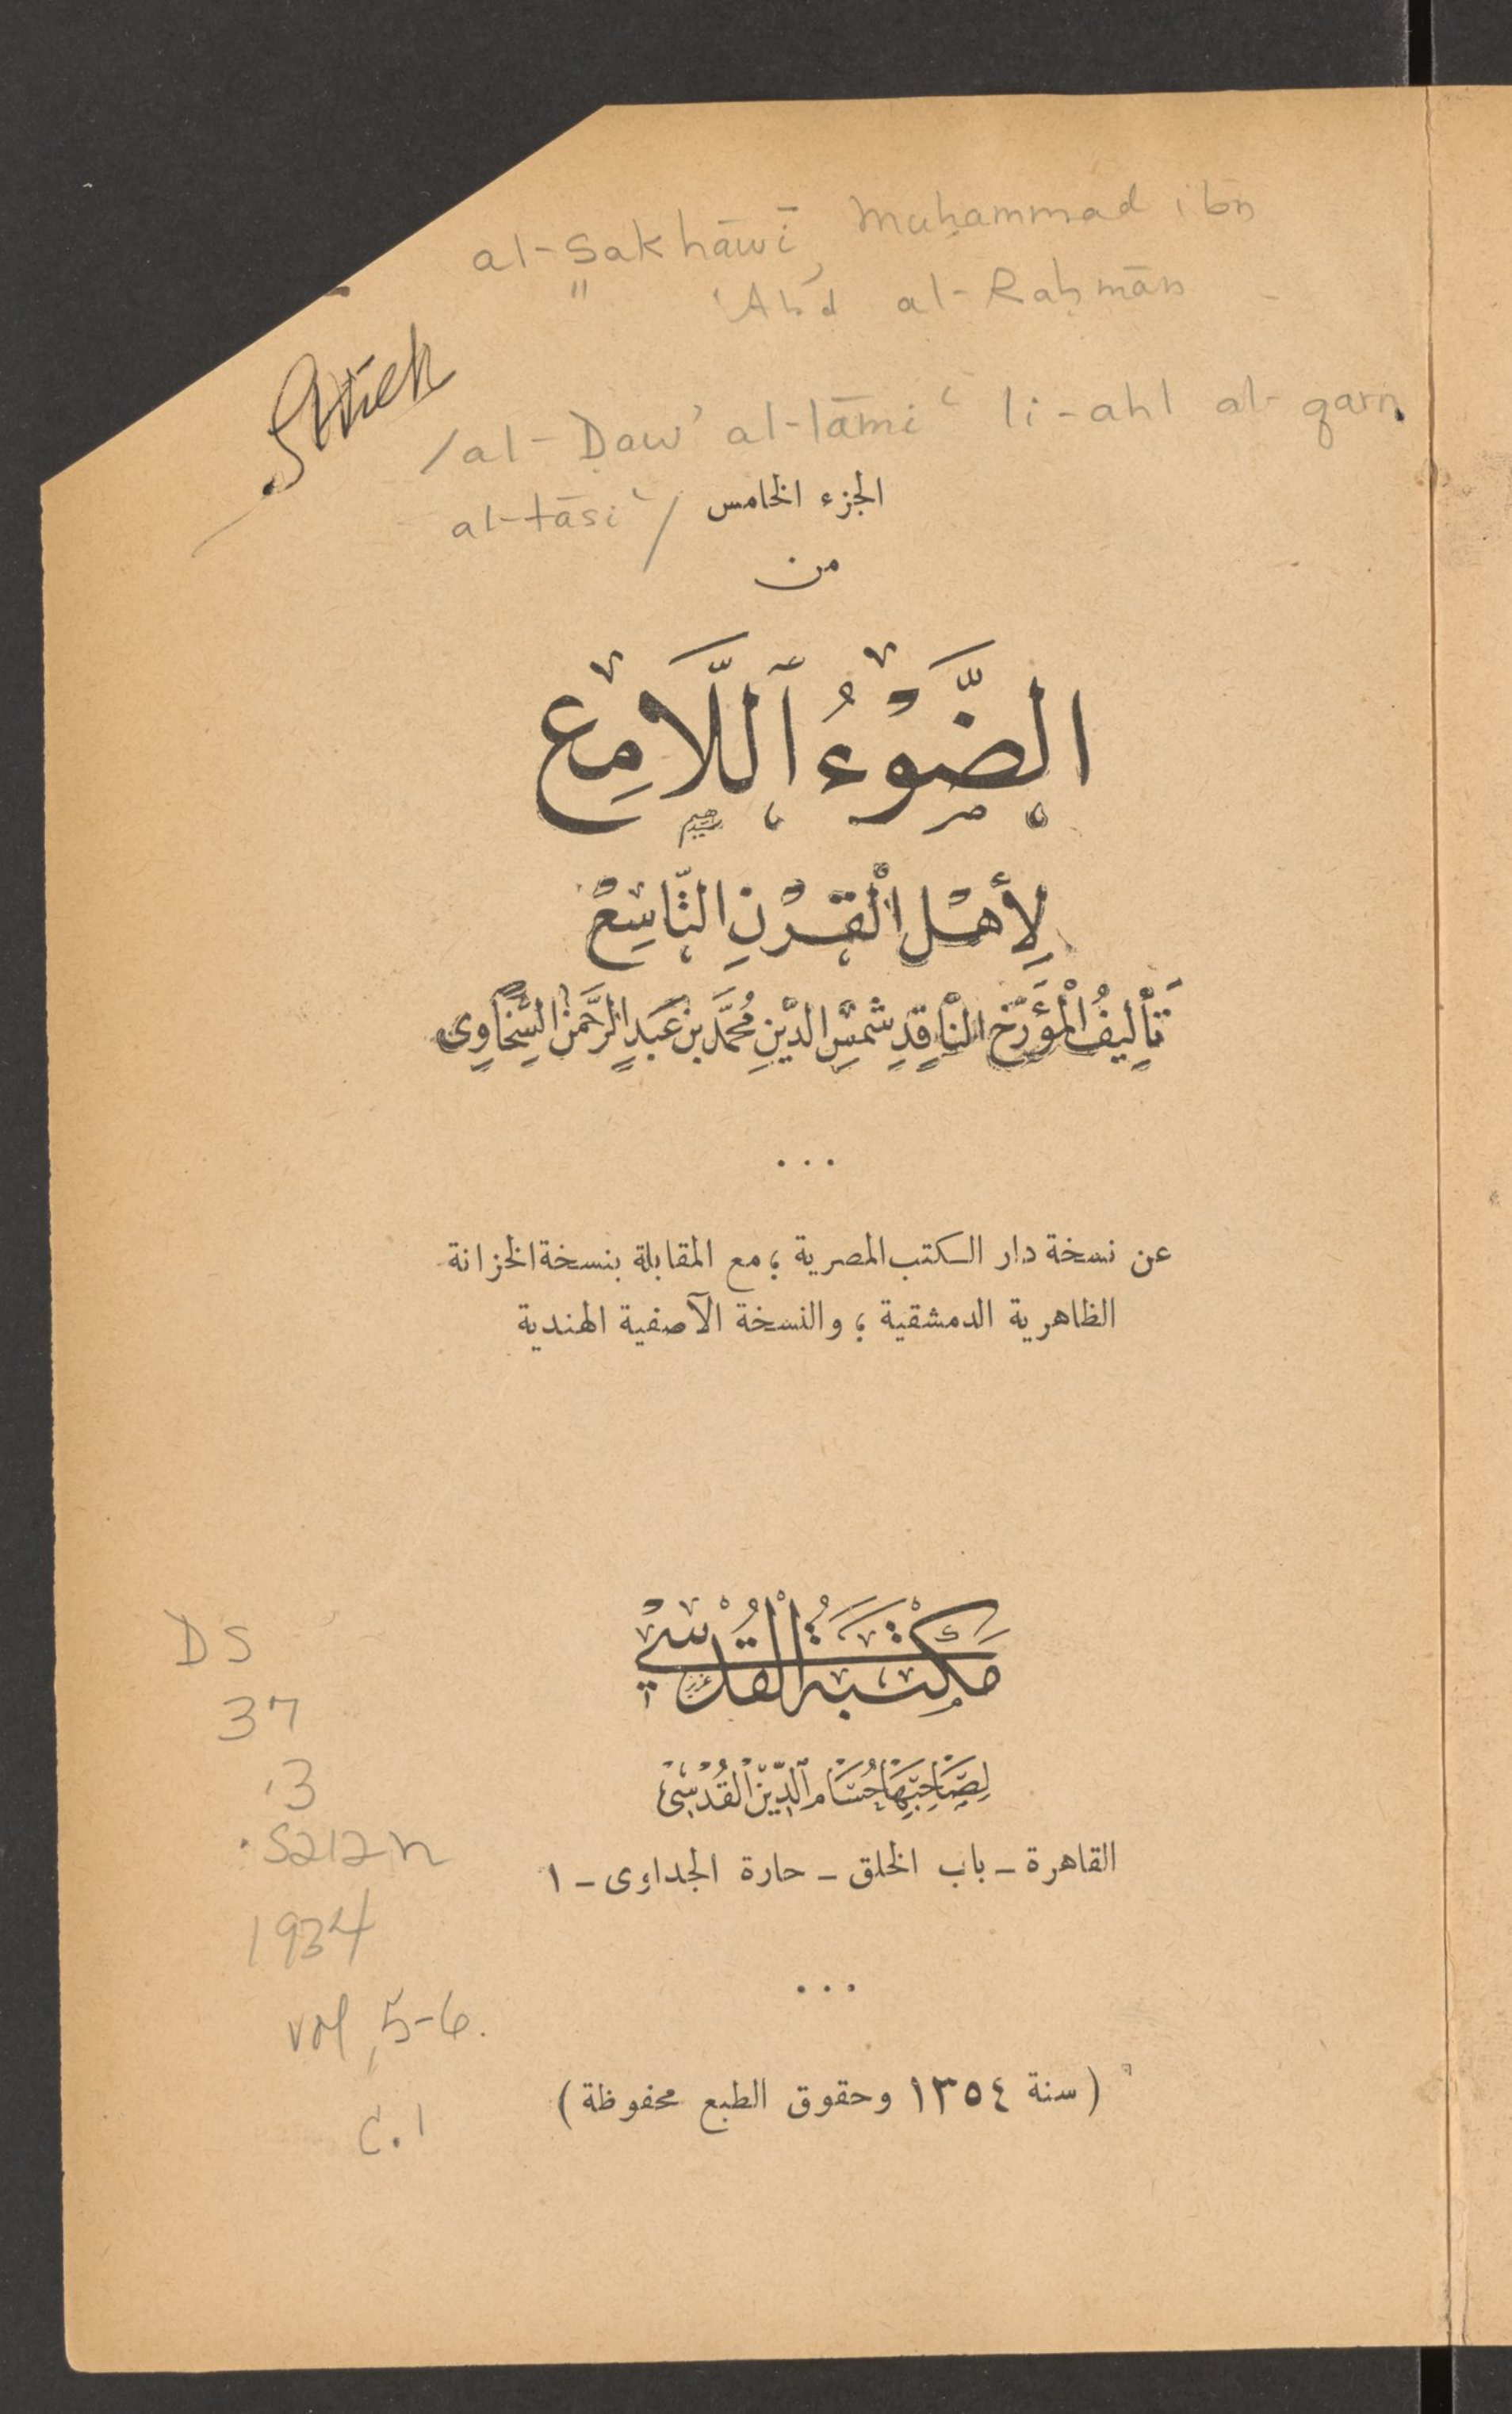 al-Sakhāwī, Muḥammad ibn
ʻAbd al-Raḥmān
/al-Ḍawʼ al-lāmiʻ li-ahl al-qarn
al-tāsiʻ/
الجزء الخامس
من
الضَّوْءُ ٱللَّامِع
لِأَهْلِ الْقَرْنِ التَّاسِعْ
تَأْلِيفُ الْمُؤَرِّخ النَّاقِدِ شَمْسِ الدِّينِ مُحَمَّد بن عَبدِ الرَّحمن السَّخَاوِى
...
عن نسخة دار الكتب المصرية ؛ مع المقابلة بنسخة الخزانة
الظاهرية الدمشقية ؛ والنسخة الآصفية الهندية
مَكْتَبَةُ الْقُدْسِي
لِصَاحِبِهَا حُسَام ٱلدِّين الْقُدْسِىْ
القاهرة - باب الخلق - حارة الجداوى - ١
...
(سنة ١٣٥٤ وحقوق الطبع محفوظة)
DS
37
.3
.S212n
1934
vol, 5-6.
c.1